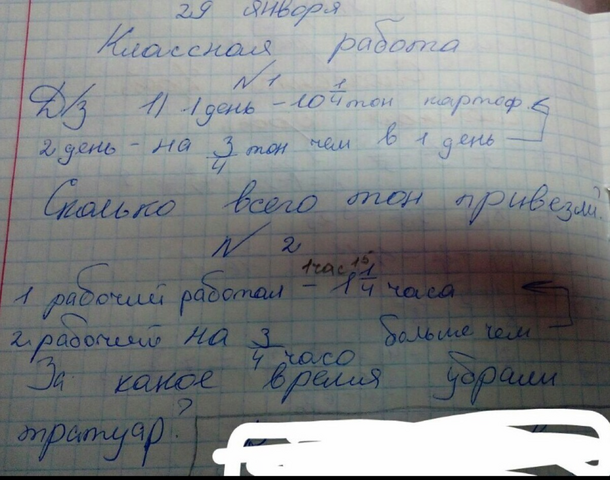 29 января
Классная работа
N1
Д/з 1) 1 день - 10 1/4 тон картоф
2 день - на 3/4 тон чем в 1 день
Сколько всего тон привезли?
N 2
1 час 15
1 рабочий работал - 1 1/4 часа
2 рабочий на 3/4 часо больше чем
За какое время убрали
тратуар?